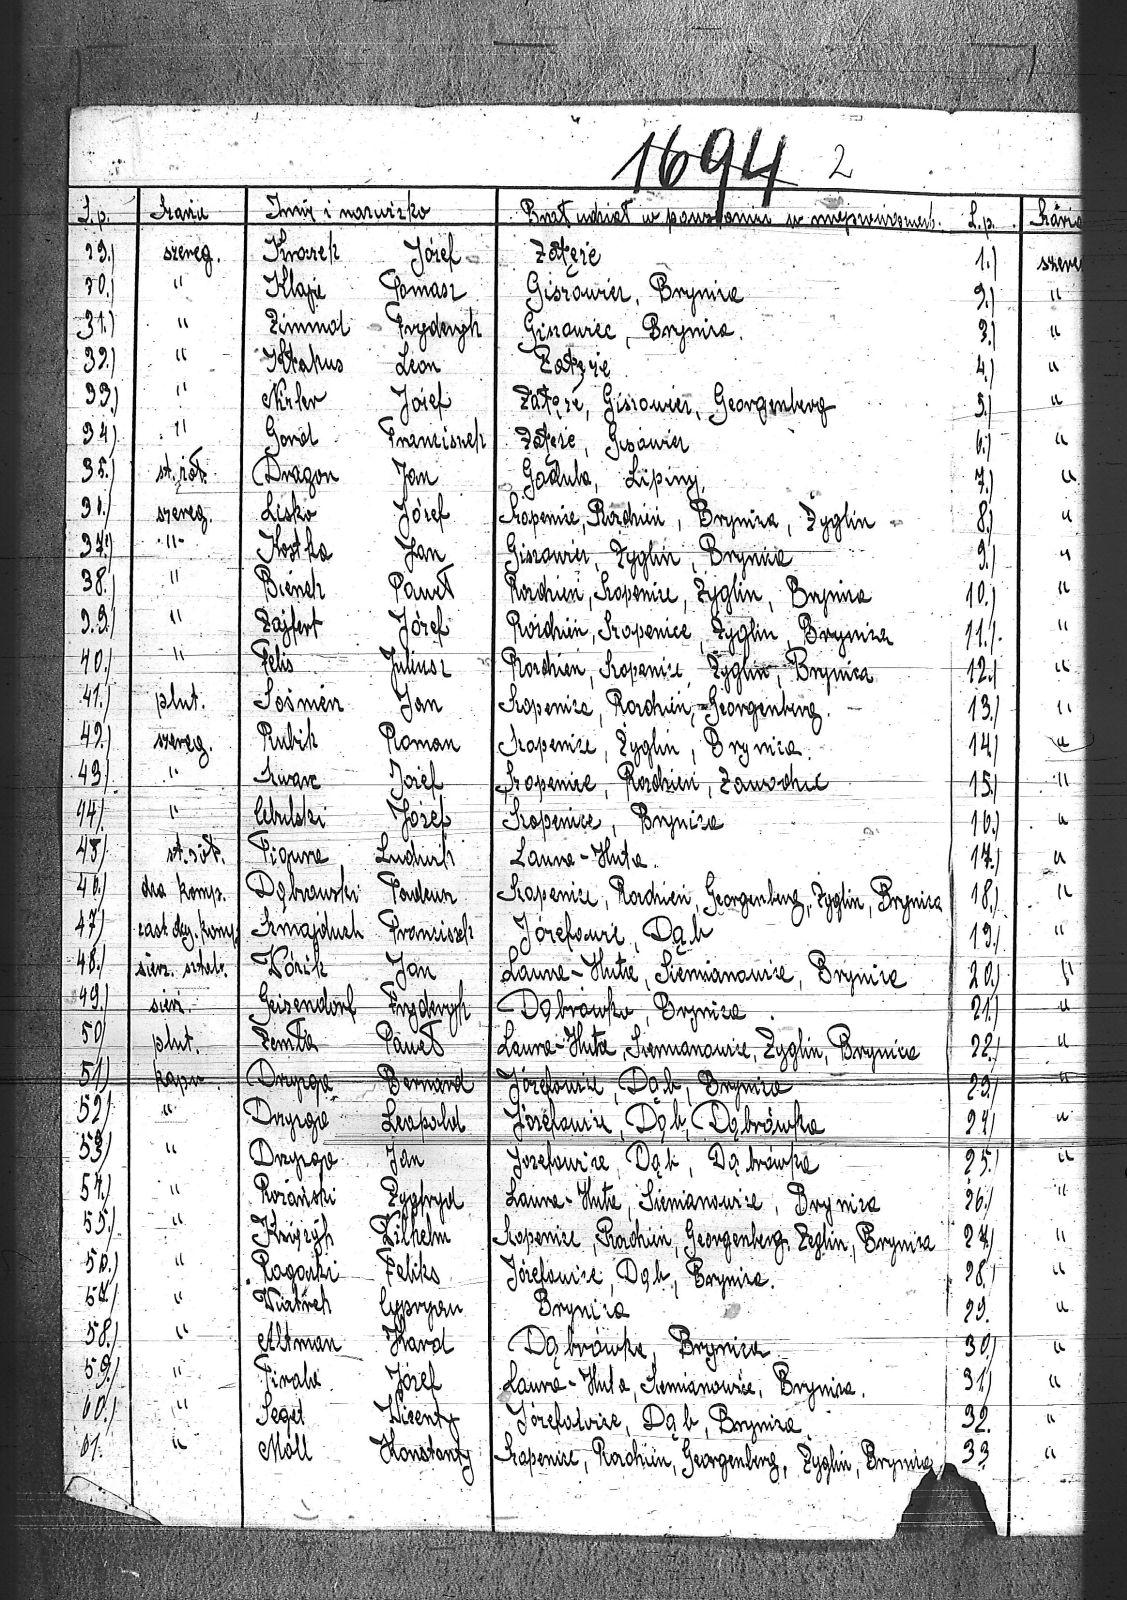 1694 2
L.p. Szarża Imię i nazwisko Brał udział w powstaniu w miejscowości. L.p. Szarża
29.) szereg. Józef Załęże 1.) szere
30.) " Klaja Tomasz Giszowiec, Brynica 2.) "
31.) " Zimmol Fryderyk Giszowiec, Brynica. 3.) "
32.) " Krakus Leon Załęże 4.) "
33.) " Józef Załęże, Giszowiec, Georgenberg 5.) "
34.) " Gorol Franciszek Załęże, Giszowiec 6.) "
35.) st. żoł. Dragon Jan Godula, Lipiny. 7.) "
36.) szereg. Lisko Józef Szopenice, Rozdzień, Brynica, Żyglin 8.) "
37.) " Kostka Jan Giszowiec, Żyglin, Brynica 9.) "
38.) " Bienek Paweł Rozdzień, Szopenice, Żyglin, Brynica 10.) "
39.) " Zajfert Józef Rozdzień, Szopenice, Żyglin, Brynica 11.) "
40.) " Felis Juliusz Rozdzień, Szopenice, Żyglin, Brynica 12.) "
41.) plut. Jan Szopenice, Rozdzień, Georgenberg. 13.) "
42.) szereg. Rubik Roman Szopenice, Żyglin, Brynica. 14.) "
43.) " Szwarc Józef Szopenice, Rozdzień, Zawodzie 15.) "
44.) " Cebulski Józef Szopenice, Brynica 16.) "
45.) st. żoł. Figura Ludwik Laura-Huta. 17.) "
46.) dca komp. Dąbrowski Tadeusz Szopenice, Rozdzień, Georgenberg, Żyglin, Brynica 18.) "
47.) zast. dcy. komp. Szmajduch Franciszek Józefowiec, Dąb 19.) "
48.) sierż. sztab. Wózik Jan Laura-Huta, Siemianowice, Brynica 20.) "
49.) sierż. Geisendorf Fryderyk Dąbrówka, Brynica. 21.) "
50.) plut. Zemła Paweł Laura-Huta, Siemianowice, Żyglin, Brynica 22.) "
51.) kapr. Dryzga Bernard Józefowiec, Dąb, Brynica 23.) "
52.) " Dryzga Leopold Józefowiec, Dąb, Dąbrówka 24.) "
53.) " Dryzga Jan Józefowiec, Dąb, Dąbrówka 25.) "
54.) " Rożański Zygfryd Laura-Huta, Siemianowice, Brynica 26.) "
55.) " Wilhelm Szopenice, Rozdzień, Georgenberg, Żyglin, Brynica 27.) "
56.) " Rogocki Feliks Józefowiec, Dąb, Brynica. 28.) "
57.) " Cypryan Brynica 29. "
58.) " Altman Karol Dąbrówka, Brynica. 30.) "
59.) " Józef Laura-Huta, Siemianowice, Brynica. 31.) "
60.) " Seget Wicenty Józefowiec, Dąb, Brynica. 32. "
61. " Moll Konstanty Szopenice, Rozdzień, Georgenberg, Żyglin, Brynica 33. "